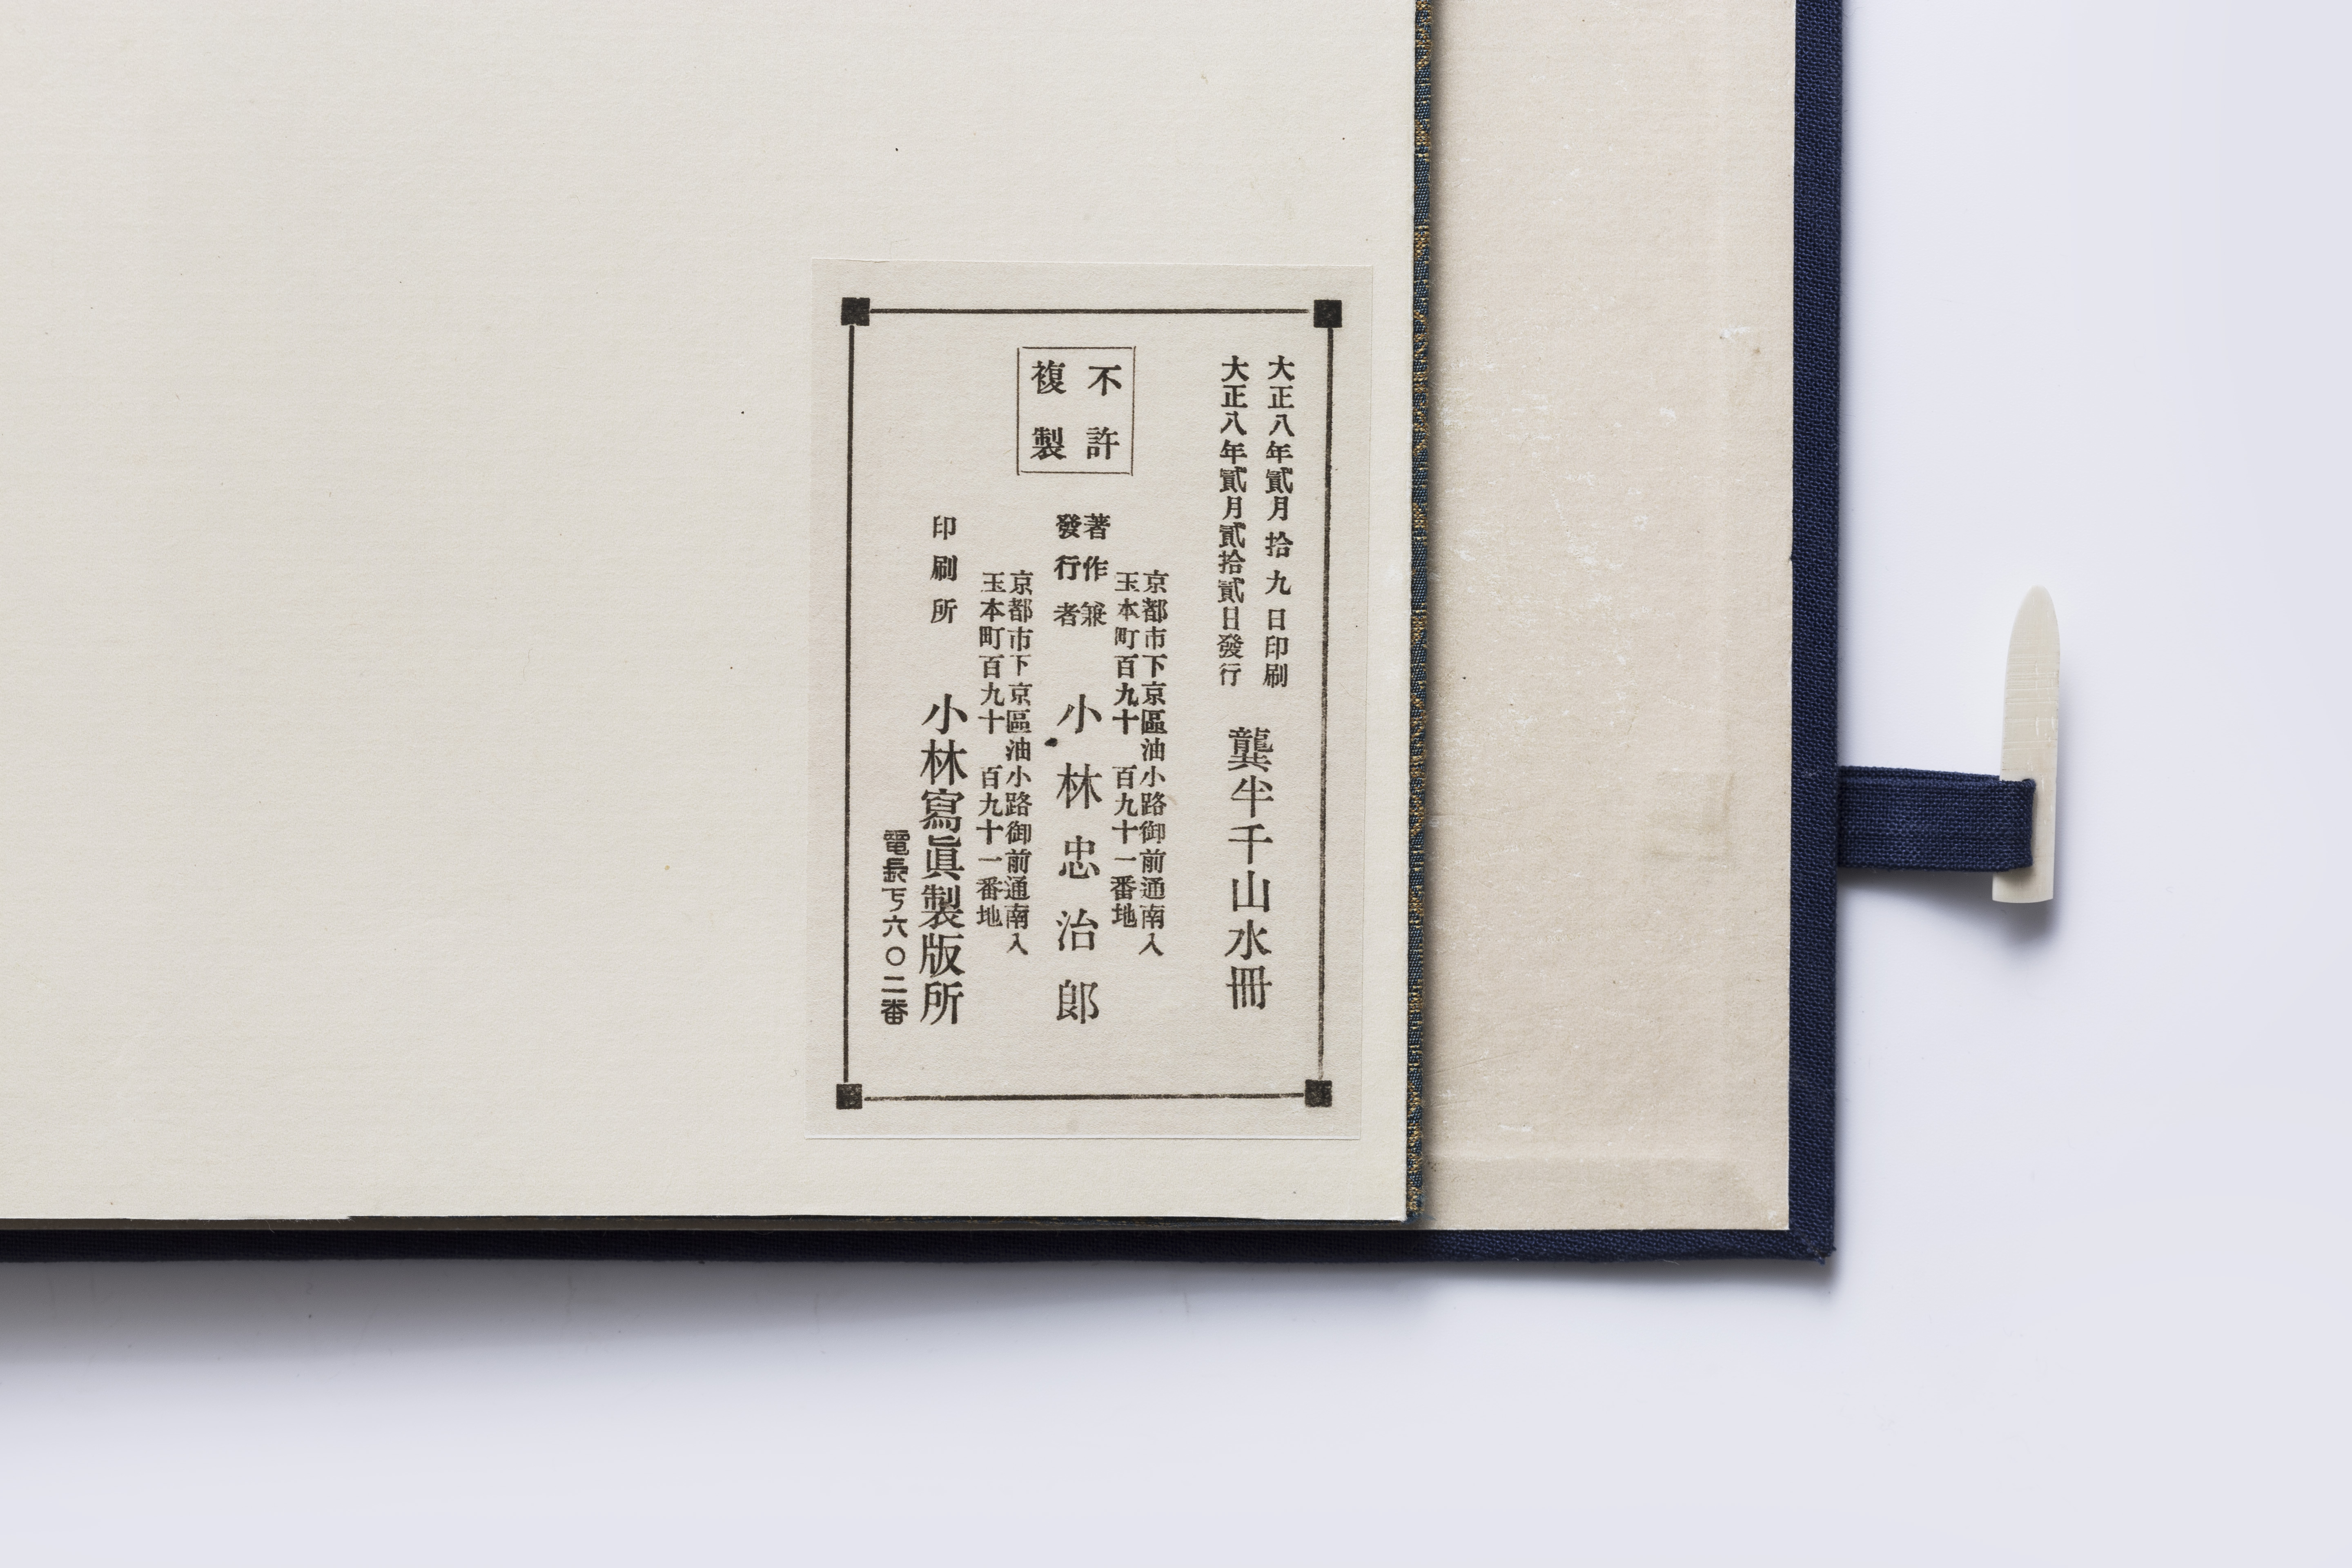 大正八年貳月拾九日印刷
大正八年貳月貳拾貳日發行
龔半千山水冊
不許
複製
京都市下京區油小路御前通南入
玉本町百九十 百九十一番地
著作兼
發行者
小林忠治郎
京都市下京區油小路御前通南入
玉本町百九十 百九十一番地
印刷所
小林寫眞製版所
電長下六〇二番